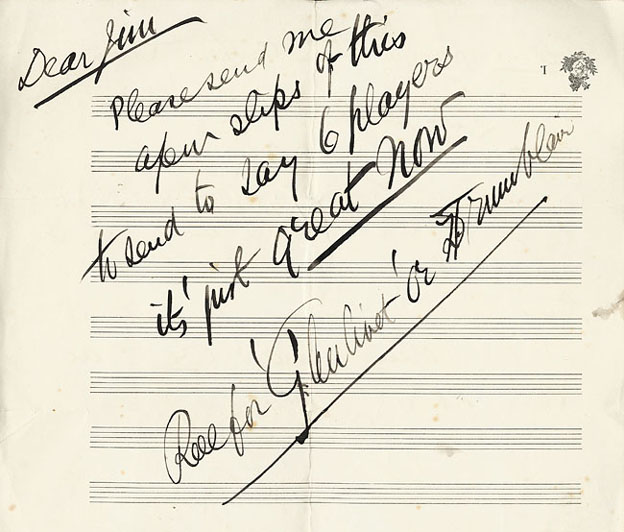 Dear Jim
Please send me
a few slips of this
to send to say 6 players
its' just great now
Ree for 'Glenlivet' or Drumblair
L